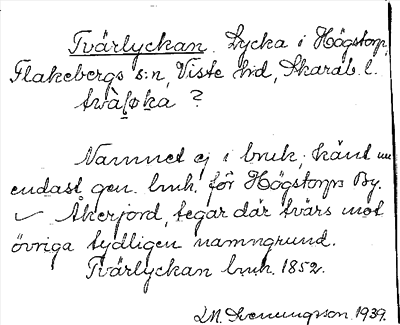 Tvärlyckan. Lycka i Högstorp,
Flakebergs s:n, Viste hd, Skarab. l.
?
Namnet ej i bruk, känt nu
endast gen. lmk. för Högstorps By.
Åkerjord, tegar där tvärs mot
övriga tydligen namngrund.
Tvärlyckan lmk. 1852.
1939.